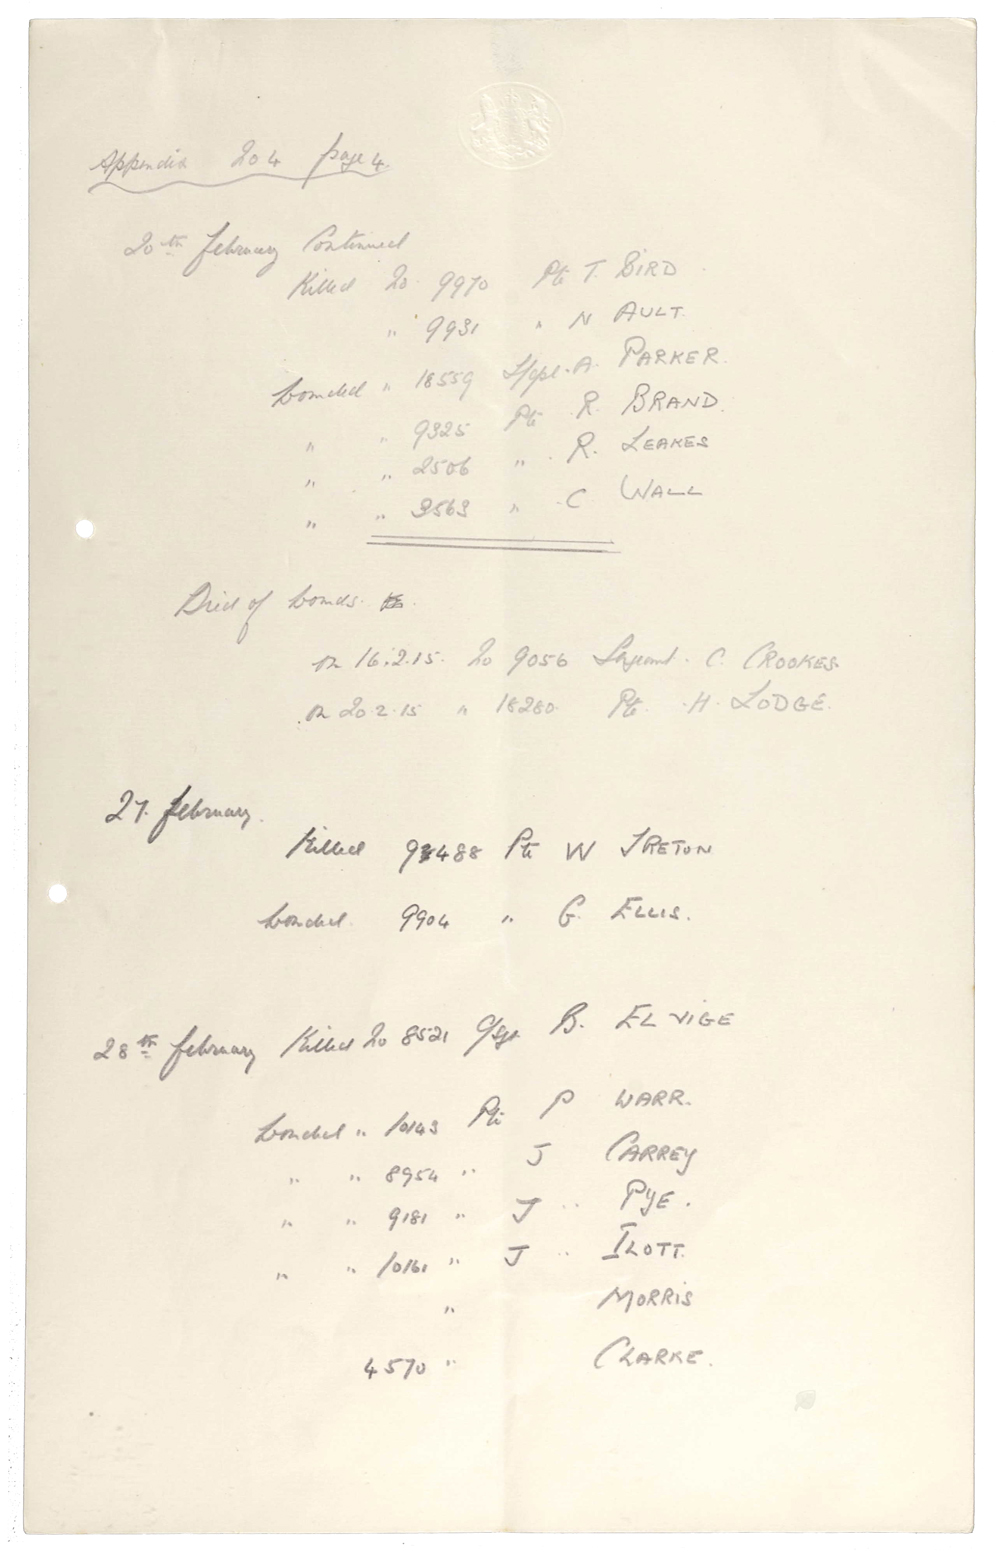 Appendix 204 page 4.
20th February Continued
Killed No. 9970 Pte T. BIRD
" 9931 " N AULT.
Wounded " 18559 L/cpl. A. PARKER.
" " 9325 Pte R. BRAND.
" " 2506 " R. LEAKES
" " 3563 " C WALL
Died of Wounds.
on 16.2.15. No 9056 Sergeant. C. CROOKES.
on 20.2.15 " 18280. Pte. H. LODGE.
27. February.
Killed 9488 Pte W IRETON
Wounded. 9904 " G. ELLIS.
28th February Killed No 8521 C/Sgt B. ELVIGE
Wounded " 10143 Pte P WARR.
" " 8954 " J CARREY
" " 9181 " J PYE.
" " 10161 " J ILOTT.
" MORRIS
4570 " CLARKE.